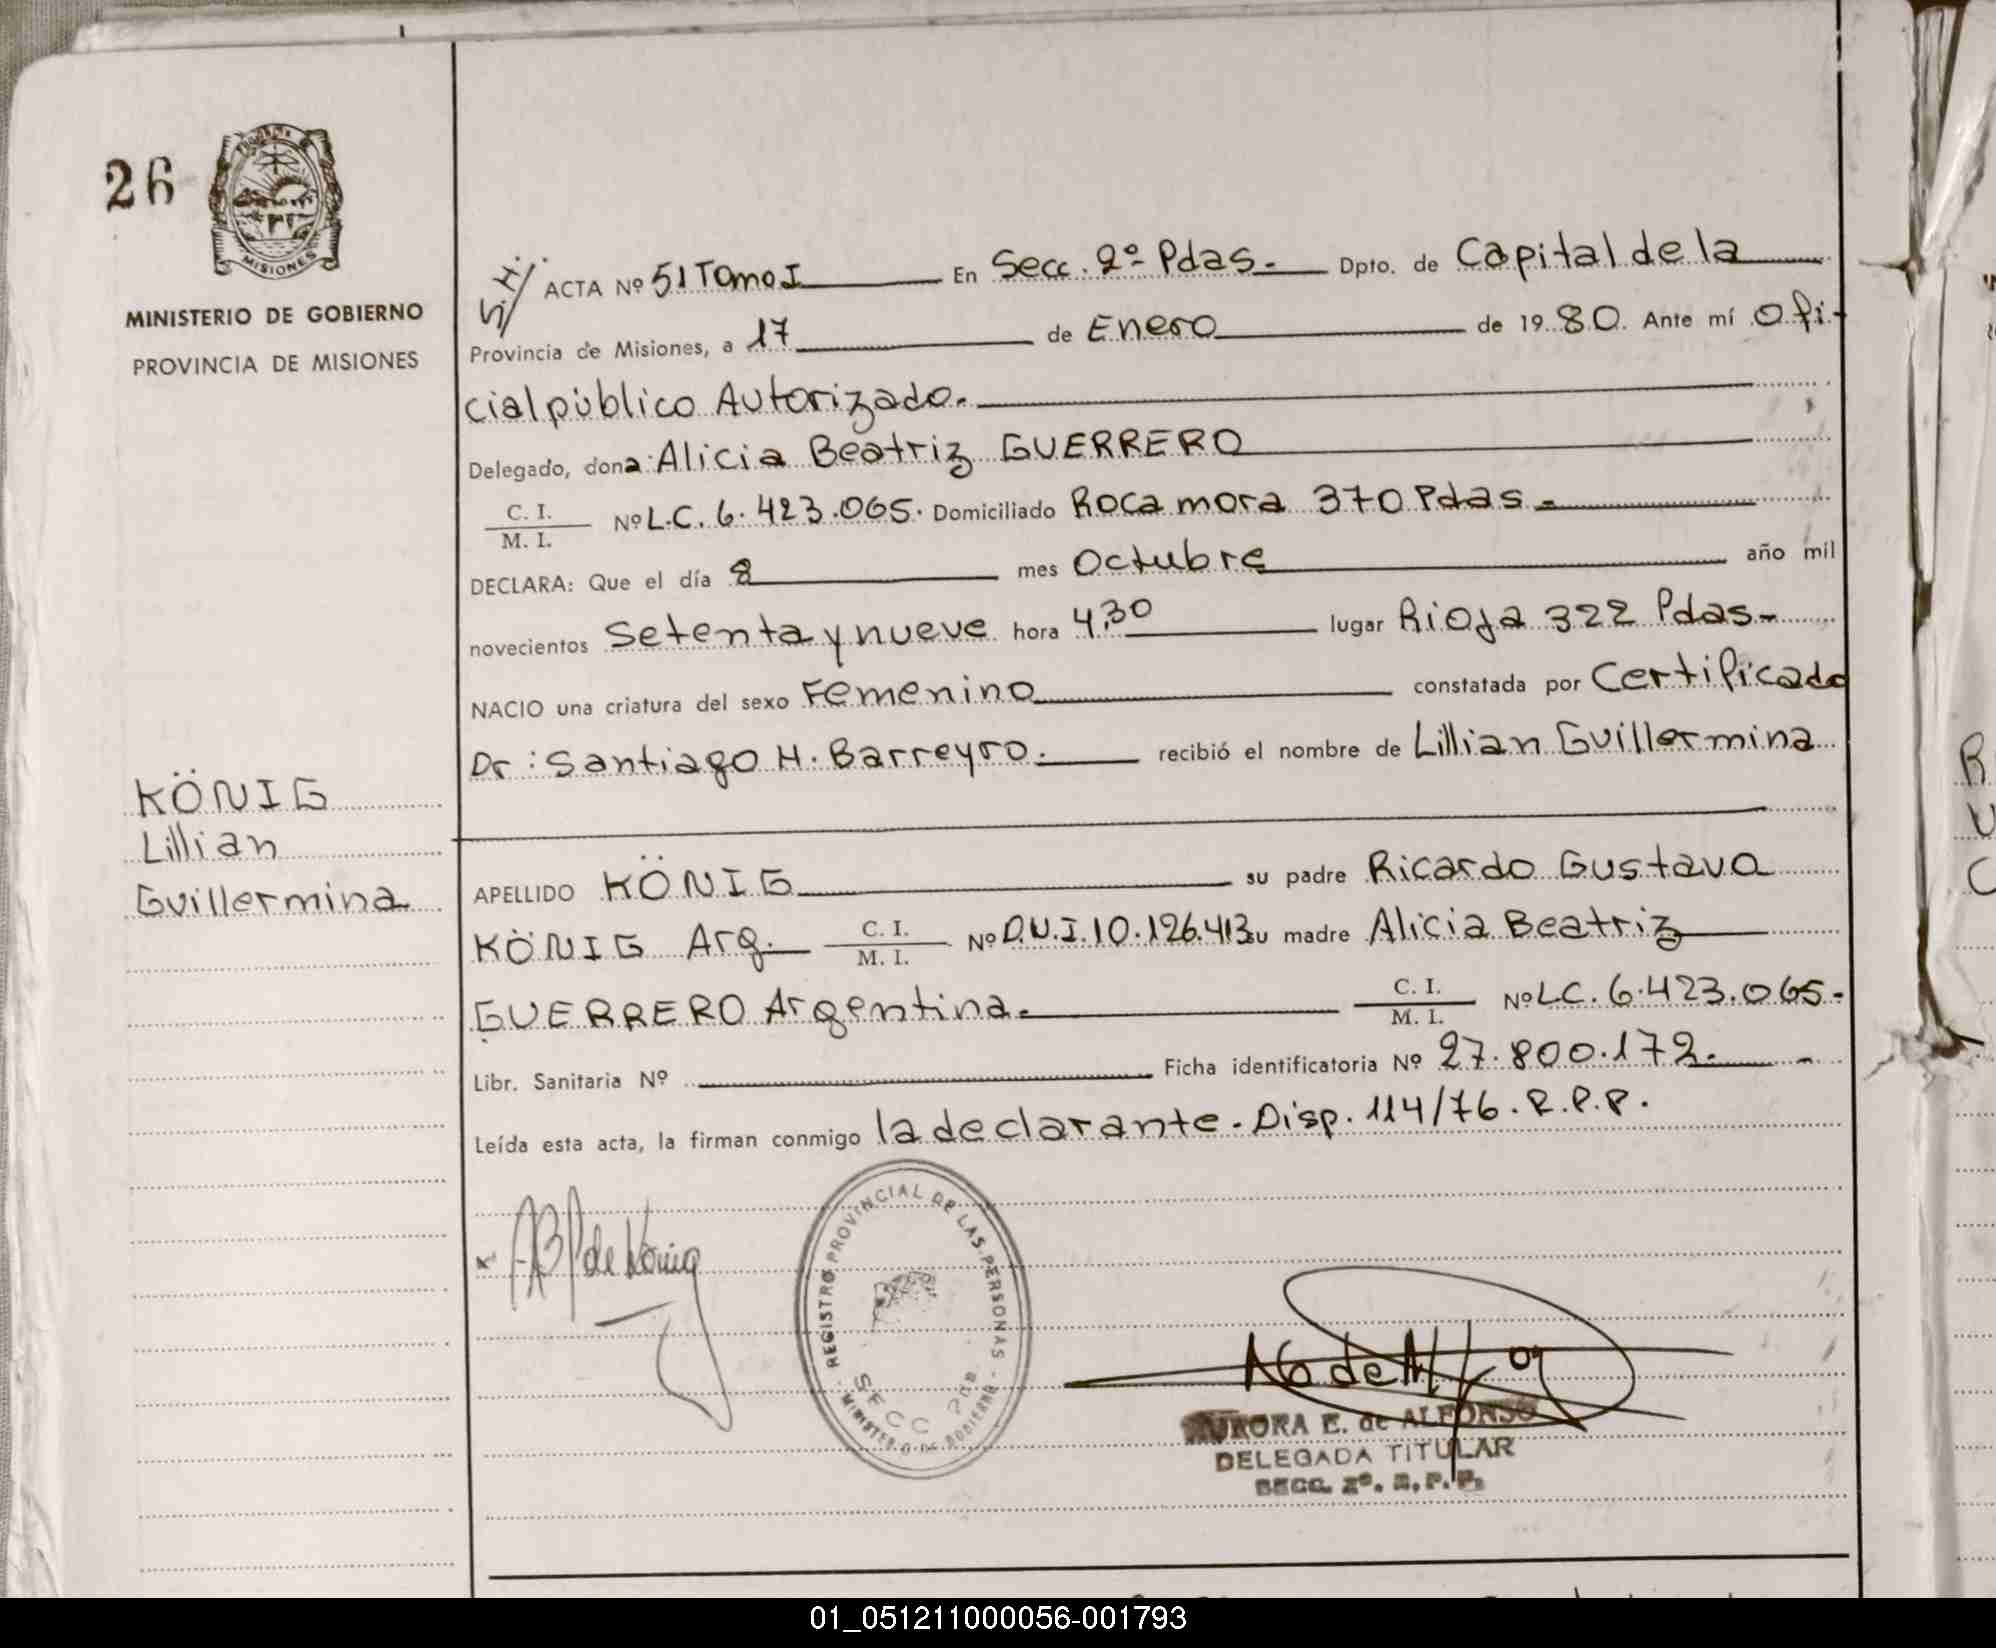 26
MISIONES
MINISTERIO DE GOBIERNO
PROVINCIA DE MISIONES
KÖNIG
Lillian
Guillermina
ACTA Nº 51 Tomo I En Secc. 2º Pdas.- Dpto. de Capital de la
Provincia de Misiones, a 17 de Enero de 19 80. Ante mí Ofi-
cial público Autorizado.
Delegado, dona Alicia Beatriz GUERRERO
C. I.
M. I. Nº L.C. 6.423.065. Domiciliado Rocamora 370 Pdas-
DECLARA: Que el día 8 mes Octubre año mil
novecientos Setenta y nueve hora 4,30 lugar Rioja 322 Pdas-
NACIO una criatura del sexo Femenino constatada por Certificado
Dr: Santiago H. Barreyro. recibió el nombre de Lillian Guillermina
APELLIDO KÖNIG su padre Ricardo Gustavo
KÖNIG Arg. C. I.
M. I. Nº D.N.I. 10.126.413 su madre Alicia Beatriz
GUERRERO Argentina. C. I.
M. I. Nº LC. 6.423.065.
Libr. Sanitaria Nº Ficha identificatoria Nº 27.800.172.-
Leída esta acta, la firman conmigo la declarante. Disp. 114/76. R.P.P.
de König
REGISTRO PROVINCIAL DE LAS PERSONAS
MINISTERIO DE GOBIERNO
SECC
AURORA E. de ALFONSO
DELEGADA TITULAR
SECC. 2º. R.P.P.
01_051211000056-001793